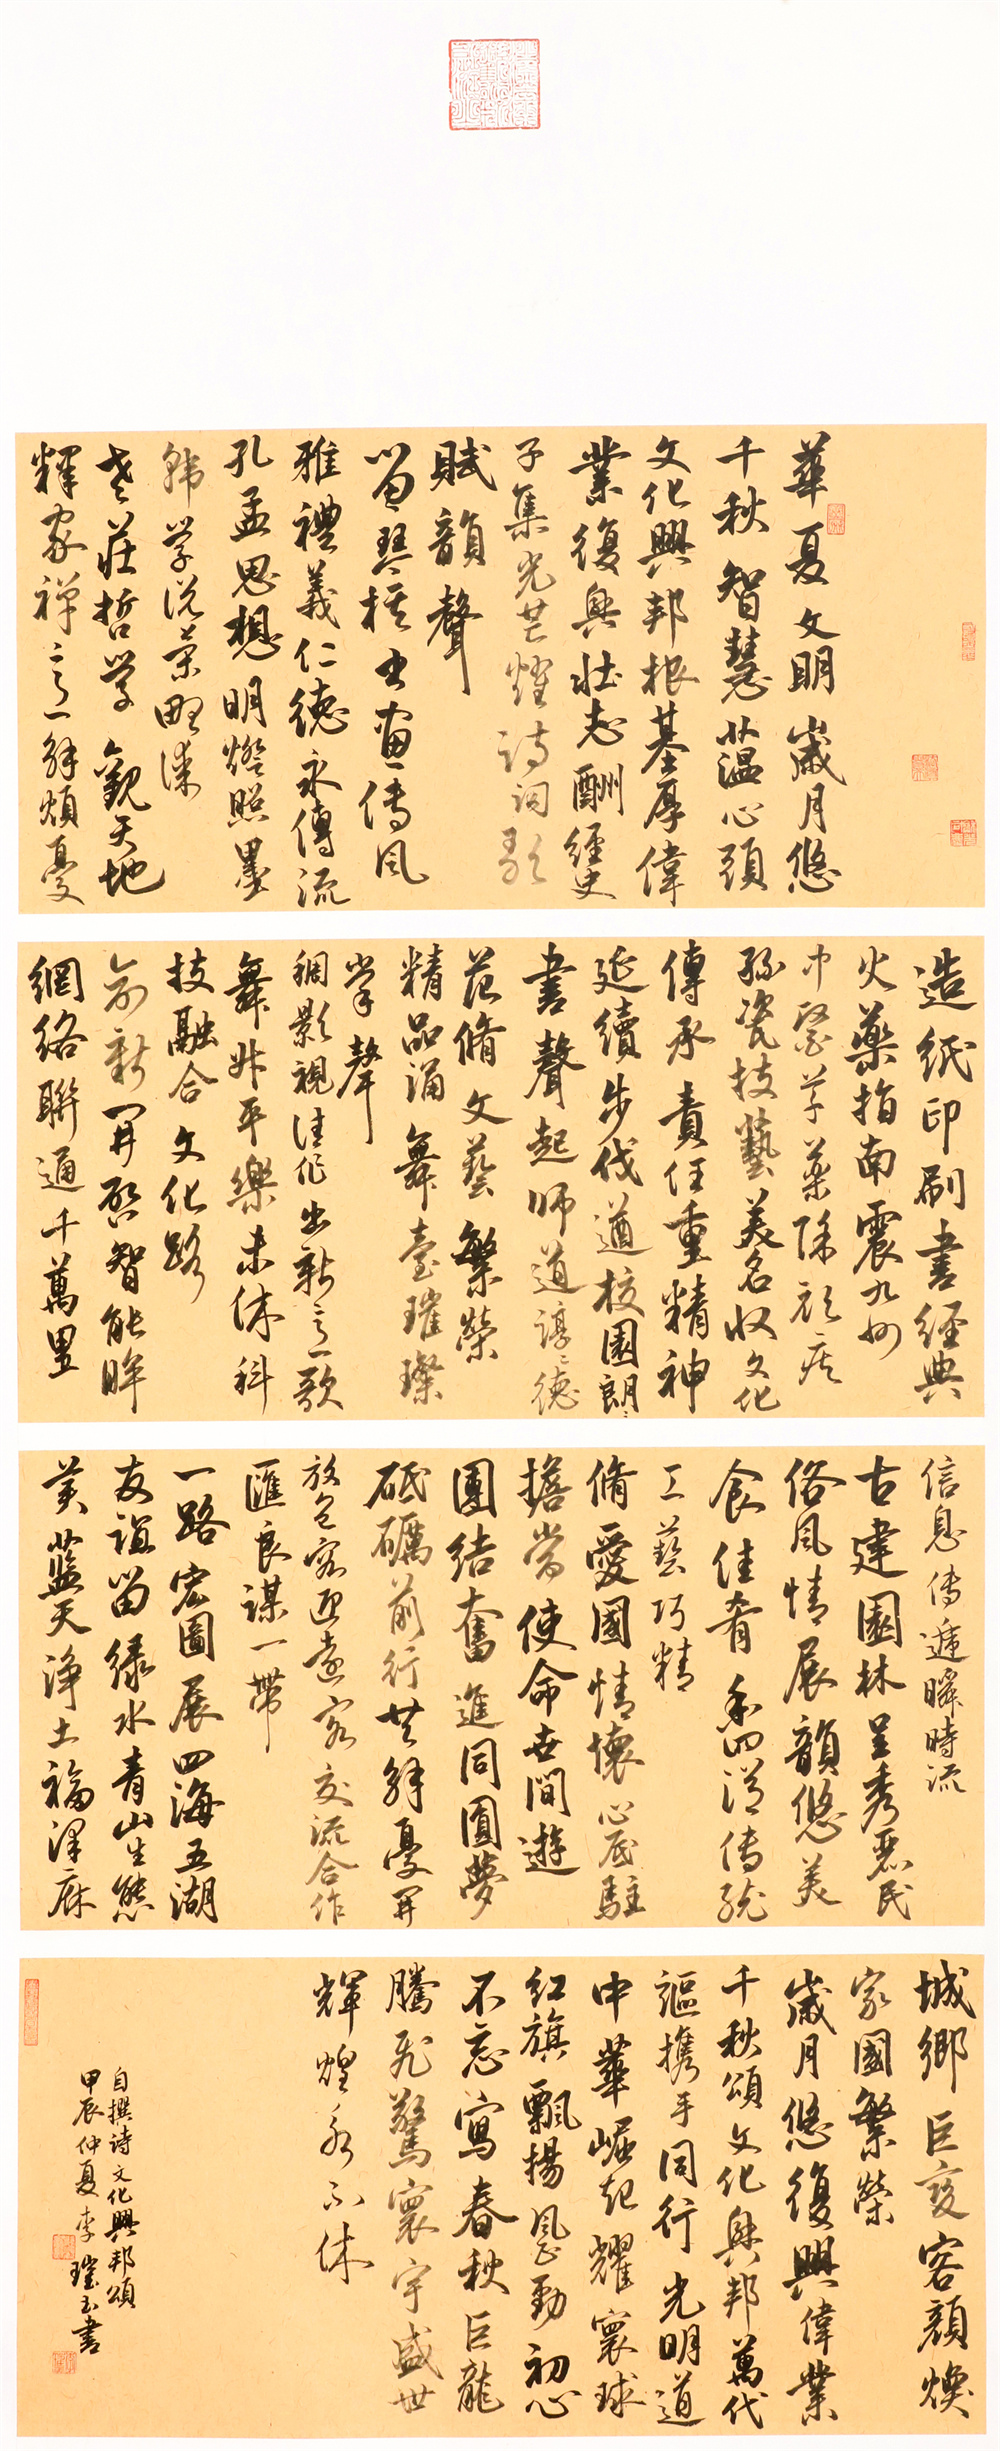 華夏文明歲月悠
千秋智慧蕴心頭
文化興邦根基厚偉
業復興壯志酬經史
子集光芒耀詩詞歌
賦韻聲
留琴棋書畫傳風
雅禮義仁德永傳流
孔孟思想明燈照墨
韩学说策略
老莊哲学觀天地
釋家禅意解煩憂
造紙印刷書經典
火藥指南震九州
中醫草藥除顽疾
絲瓷技藝美名收文化
傳承責任重精神
延續步伐遒校園朗々
書聲起師道諄々德
范脩文藝繁榮
精品涌舞臺璀璨
掌聲
稠影視佳作出新意歌
舞升平樂未休科
技融合文化路
創新開啟智能眸
網絡聯通千萬里
信息傳遞瞬時流
古建園林呈秀麗民
俗風情展韻悠美
食佳肴香四溢傳統
工藝巧精
脩愛國情懷心底駐
擔當使命世間遊
團結奮進同圓夢
砥礪前行共解憂開
放包容迎遠客交流合作
匯良謀一帶
一路宏圖展四海五湖
友誼留綠水青山生態
美藍天淨土福澤庥
城鄉巨變容顏煥
家國繁榮
歲月悠復興偉業
千秋頌文化興邦萬代
謳攜手同行光明道
中華崛起耀寰球
紅旗飄揚風雷動初心
不忘寫春秋巨龍
騰飛驚寰宇盛世
輝煌永不休
自撰诗文化興邦頌
甲辰仲夏李書